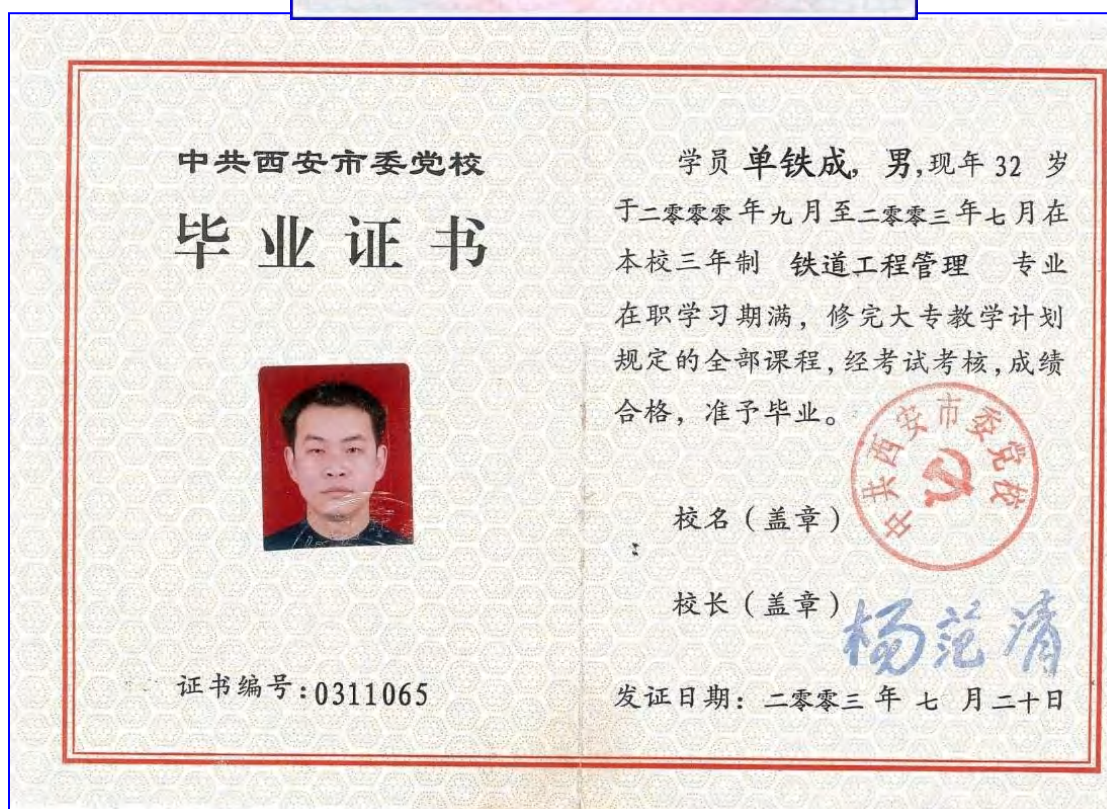 中共西安市委党校
毕业证书
证书编号:0311065
学员 单铁成, 男,现年 32 岁
于二零零零年九月至二零零三年七月在
本校三年制 铁道工程管理 专业
在职学习期满，修完大专教学计划
规定的全部课程,经考试考核,成绩
合格，准予毕业。
中共西安市委党校
校名（盖章）
校长（盖章）
杨范清
发证日期：二零零三年七月二十日